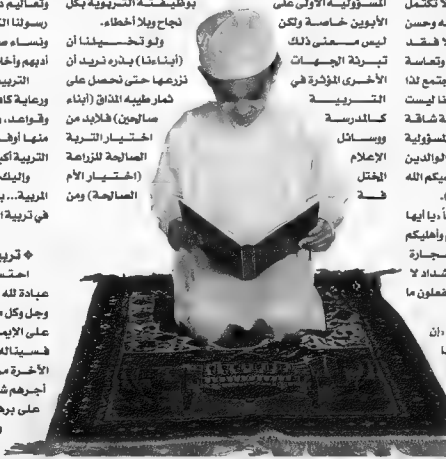 لا تكتمل
وحسن
لا فقد
وتعاسة
جتمع لذا
د ليست
ة شاقة
لسؤولية
الوالدين
ميكم الله
أ «يا أيها
م وأهليكم
حجارة
شداد لا
فعلون ما
«إن
ا
المسؤولية الأولى على
الأبوين خاصة ولكن
ليس معنى ذلك
تبرئة الجهات
الأخرى المؤثرة في
التربية
كالمدرسة
ووسائل
الإعلام
المختل
فة
بوظيفته التربوية بكل
نجاح وبلا أخطاء.
ولو تخيلنا أن
(أبناءنا) بذره نريد أن
نزرعها حتى نحصل على
ثمار طيبه المذاق (أبناء
صالحين) فلابد من
اختيار التربة
الصالحة للزراعة
(اختيار الأم
الصالحة) ومن
وتعاليم د
رسولنا الـ
ونساء صـ
أدبهم وأخلا
التربيـ
ورعاية كاف
وقواعد، و
منها أوف
التربية أكبـ
وإليك
المربية... بـ
في تربية ا
❖ تربيـ
احتسـ
عبادة لله
وجل وكل م
على الإيمـ
فسينالك
الآخرة مـ
أجرهم شـ
على برهـ
و